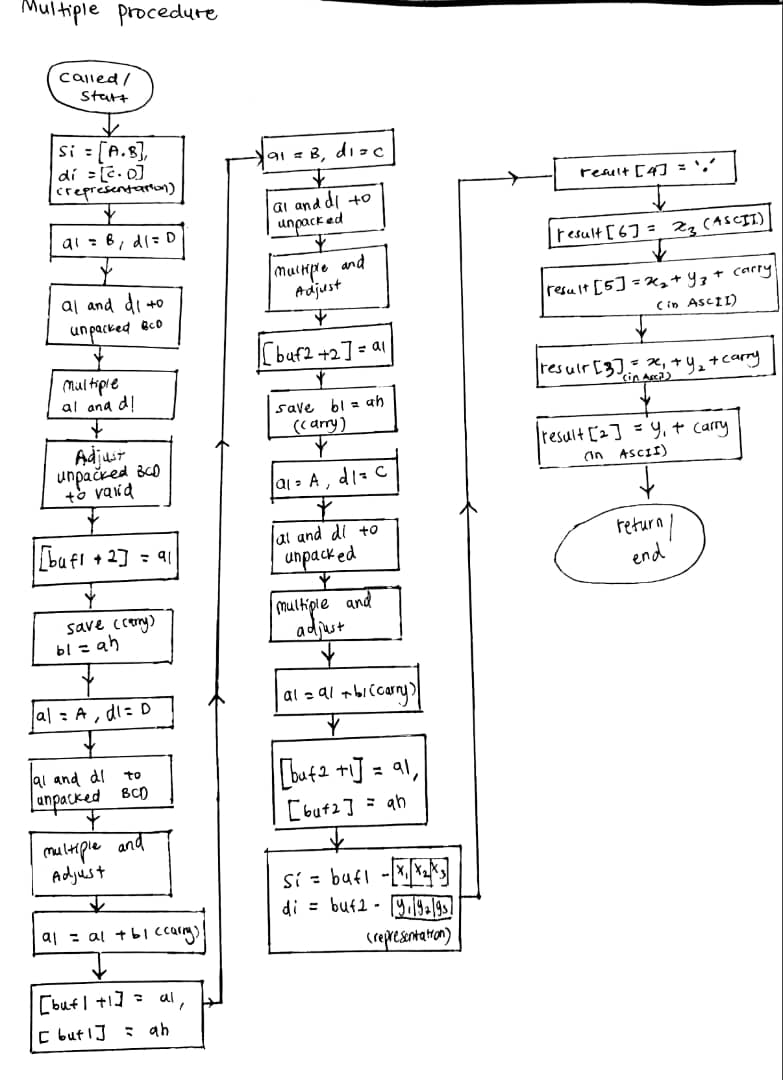 Multiple procedure
Called/
Start
si = [A.B],
di = [C.D]
(representation)
al = B, dl = D
al and dl to
unpacked BCD
multiple
al and dl
Adjust
unpacked BCD
to valid
[buf1 + 2] = al
save (carry)
bl = ah
al = A, dl = D
al and dl to
unpacked BCD
multiple and
Adjust
al = al + bl (carry)
[buf1 +1] = al,
[buf1] = ah
al = B, dl = C
al and dl to
unpacked
multiple and
Adjust
[buf2 +2] = al
save bl = ah
(carry)
al = A, dl = C
al and dl to
unpacked
multiple and
adjust
al = al + bl (carry)
[buf2 +1] = al,
[buf2] = ah
si = buf1 - x₁ x₂ x₃
di = buf2 - y₁ y₂ y₃
(representation)
result [4] = '.'
result [6] = x₃ (ASCII)
result [5] = x₂ + y₃ + carry
(in ASCII)
result [3] = x₁ + y₂ + carry
(in ASCII)
result [2] = y₁ + carry
(in ASCII)
return/
end